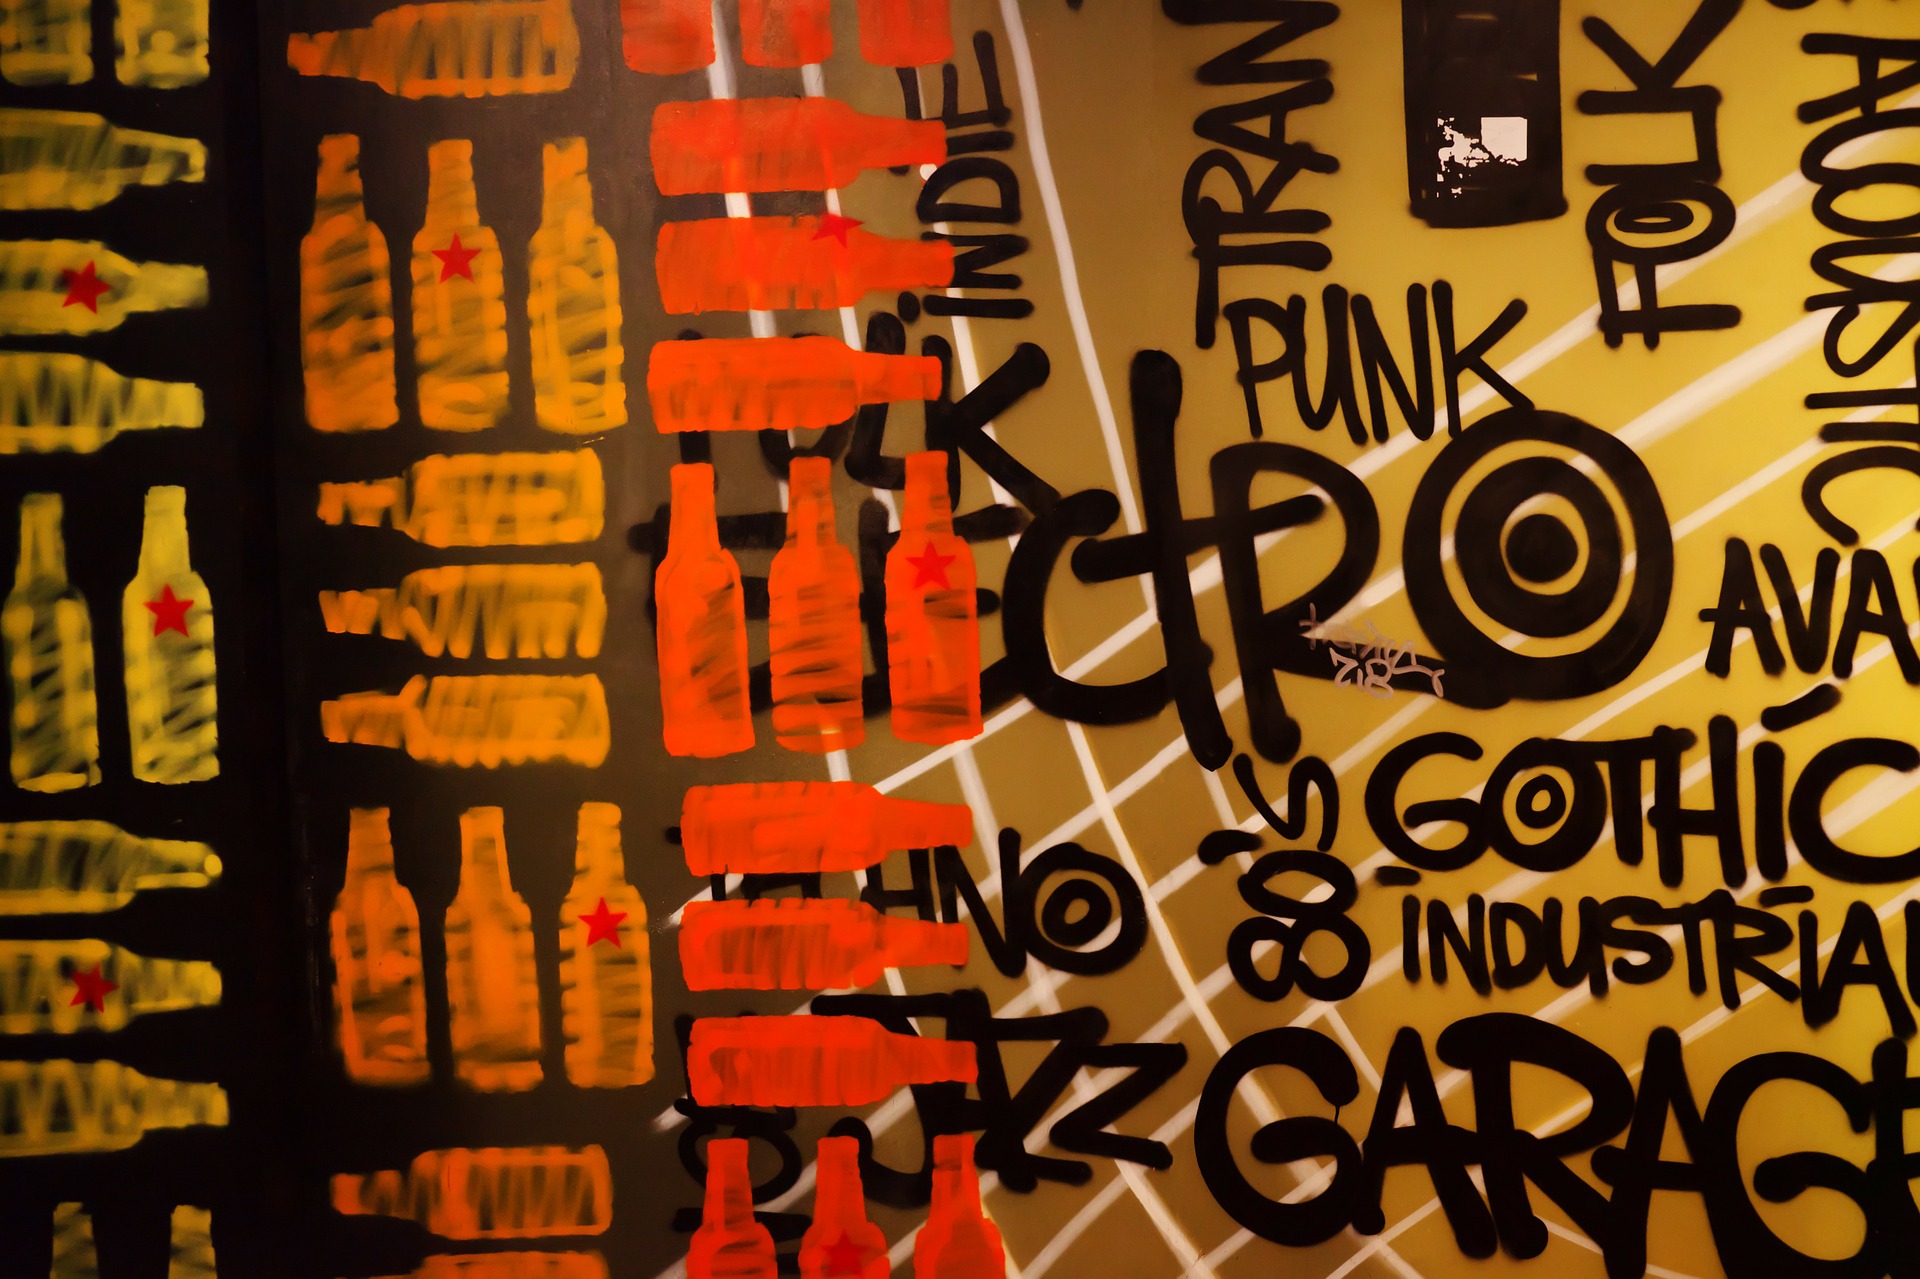 INDIE
TRAN
FOLK
ACOUSTIC
PUNK
ECTRO
AVA
718
80'S
GOTHIC
HNO
INDUSTRIAL
JAZZ
GARAGE